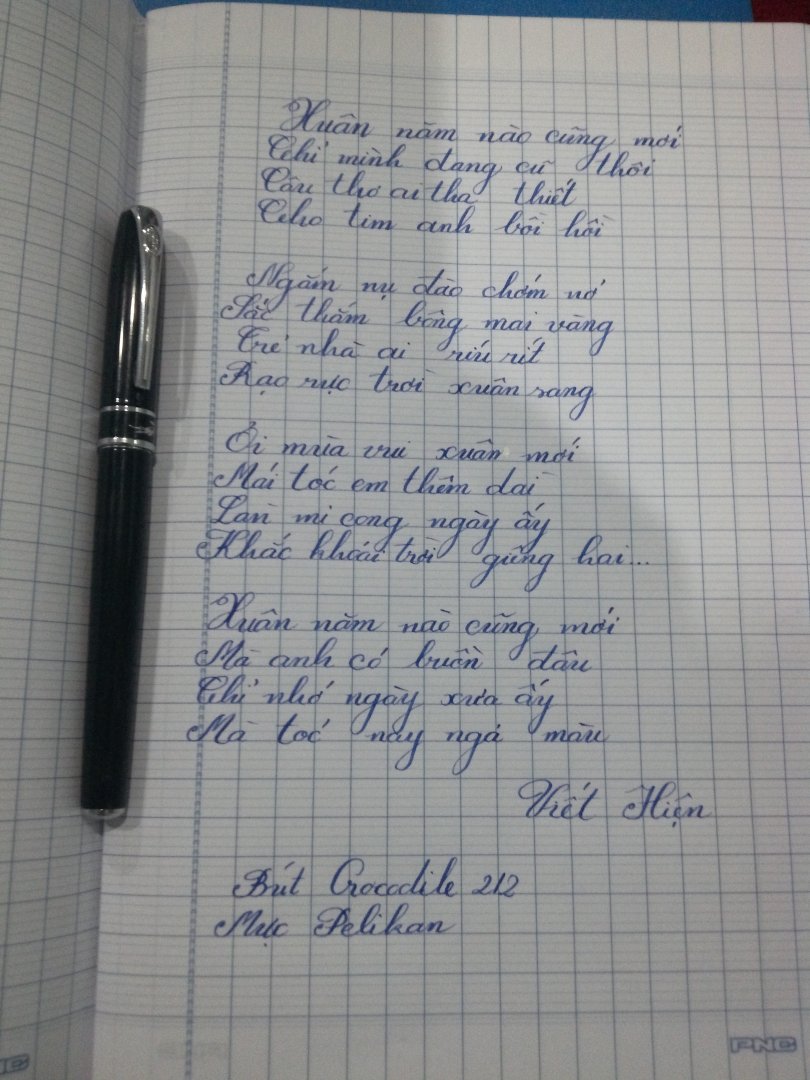 Xuân năm nào cũng mới
Chỉ mình đang cũ thôi
Câu thơ ai tha thiết
Cho tim anh bồi hồi
Ngắm nụ đào chớm nở
Sắc thắm bông mai vàng
Trẻ nhà ai ríu rít
Rạo rực trời xuân sang
Ơi mùa vui xuân mới
Mái tóc em thêm dài
Làn mi cong ngày ấy
Khắc khoải trời giêng hai...
Xuân năm nào cũng mới
Mà anh có buồn đâu
Chỉ nhớ ngày xưa ấy
Mà tóc nay ngả màu
Viết Hiện
Bút Crocodile 212
Mực Pelikan
PNC
NC